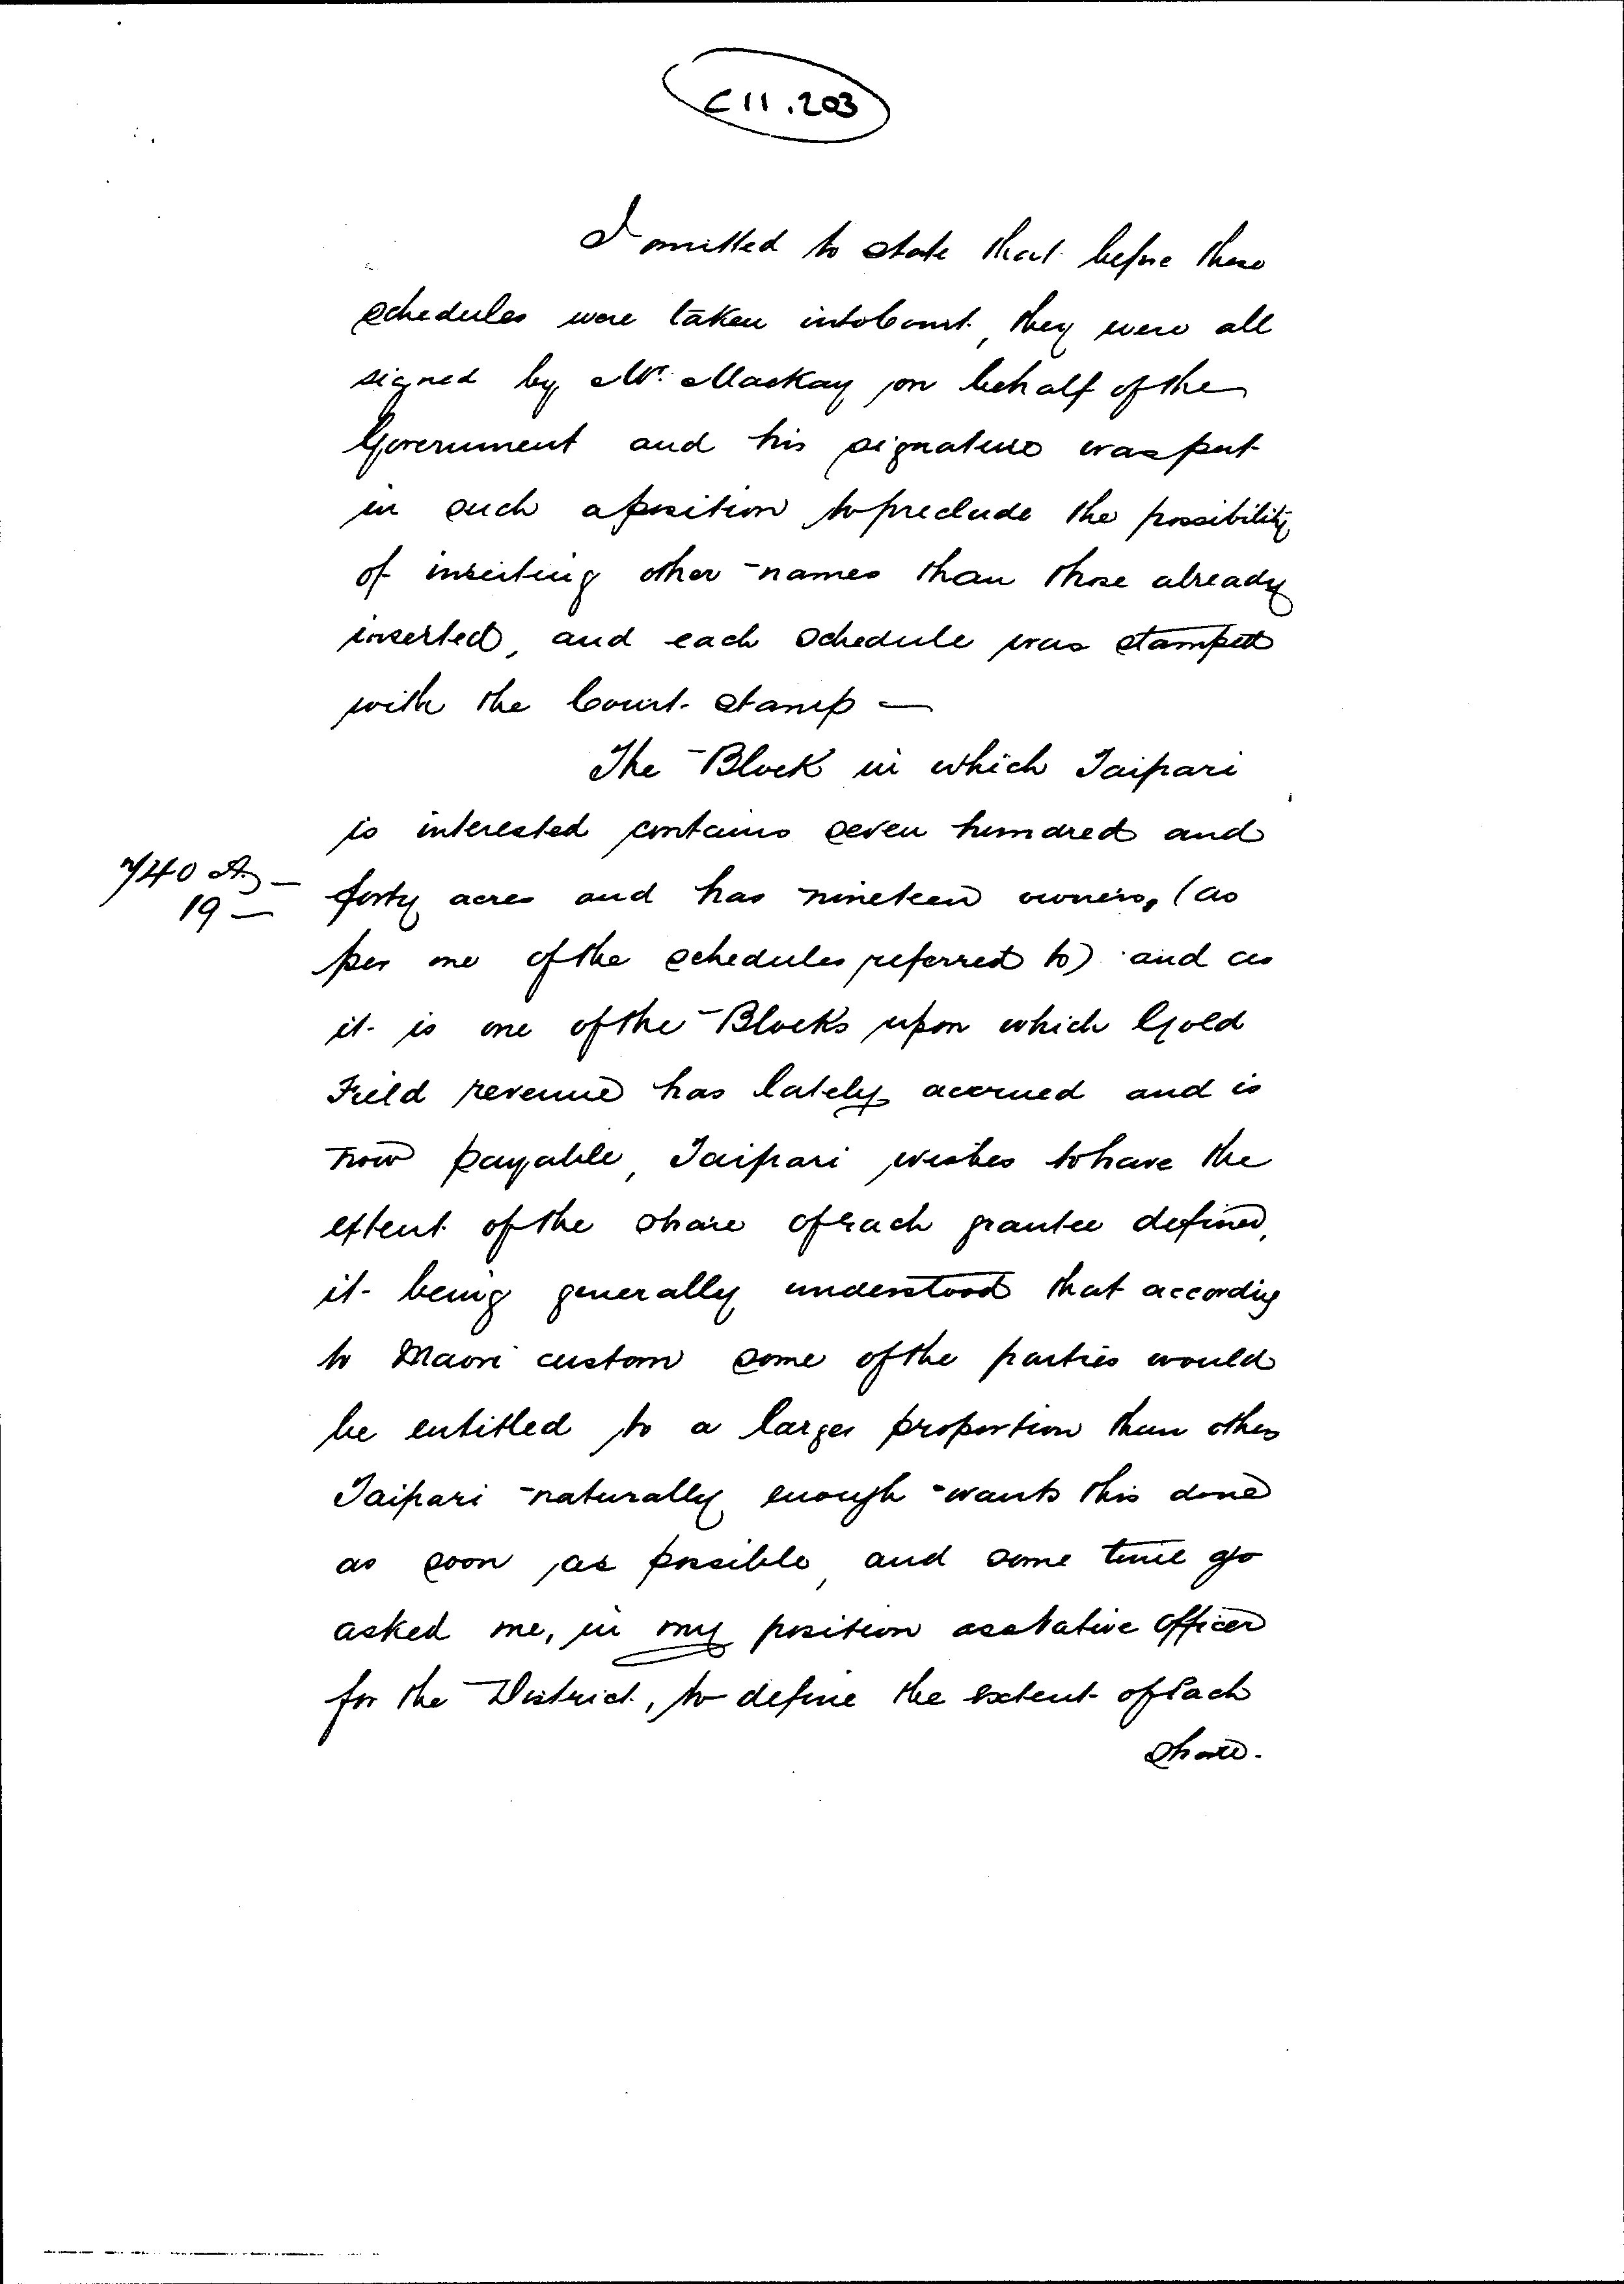 C11.203
I omitted to state that before these
schedules were taken into Court, they were all
signed by Mr. Mackay on behalf of the
Government and his signature was put
in such a position to preclude the possibility
of inserting other names than those already
inserted, and each schedule was stamped
with the Court stamp —
The Block in which Taipari
is interested contains seven hundred and
740 A. —
19 —
forty acres and has nineteen owners, (as
per one of the schedules referred to) and as
it is one of the Blocks upon which Gold
Field revenue has lately accrued and is
now payable, Taipari wishes to have the
extent of the share of each grantee defined,
it being generally understood that according
to Maori custom some of the parties would
be entitled to a larger proportion than others
Taipari naturally enough wants this done
as soon as possible, and some time ago
asked me, in my position as Native Officer
for the District, to define the extent of each
share.